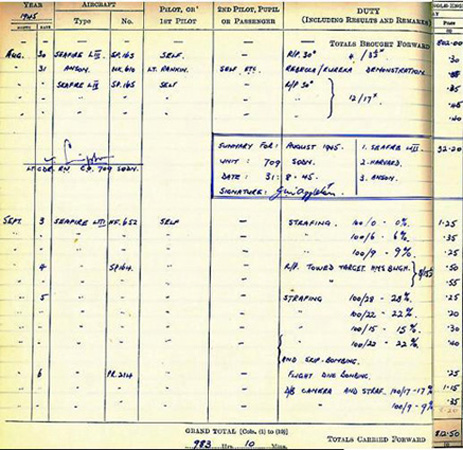 YEAR AIRCRAFT PILOT, OR 2ND PILOT, PUPIL DUTY
1945 Type No. 1ST PILOT OR PASSENGER (INCLUDING RESULTS AND REMARKS)
TOTALS BROUGHT FORWARD
AUG. 30 SEAFIRE LIII SP.163 SELF — R/P 30°
31 ANSON LT. RANKIN SELF ETC. REBECCA/EUREKA DEMONSTRATION
SEAFIRE LIII SP.165 SELF — R/P 30°
12/17
SUMMARY FOR: AUGUST 1945. 1. SEAFIRE LIII 32.20
UNIT: 709 SQDN. 2. HARVARD.
DATE: 31. 8. 45. 3. ANSON.
SIGNATURE:
LT. CDR. RN. C.O. 709 SQDN.
SEPT. 3 SEAFIRE LIII NF.652 SELF — STRAFING 100/0 – 0% 1.25
100/6 – 6% .35
100/9 – 9% .25
4 SP.164 R/P. TOWED TARGET .50
.55
5 STRAFING 100/28 – 28% .25
100/22 – 22% .20
100/15 – 15% .30
100/22 – 22% .40
AND SKIP-BOMBING.
6 PR.214 FLIGHT DIVE BOMBING .25
D/B CAMERA AND STRAF. 100/17 – 17% 1.15
100/9 – 9% .35
GRAND TOTAL [Cols. (1) to (10)]
983 Hrs. 10 Mins. TOTALS CARRIED FORWARD 812.50